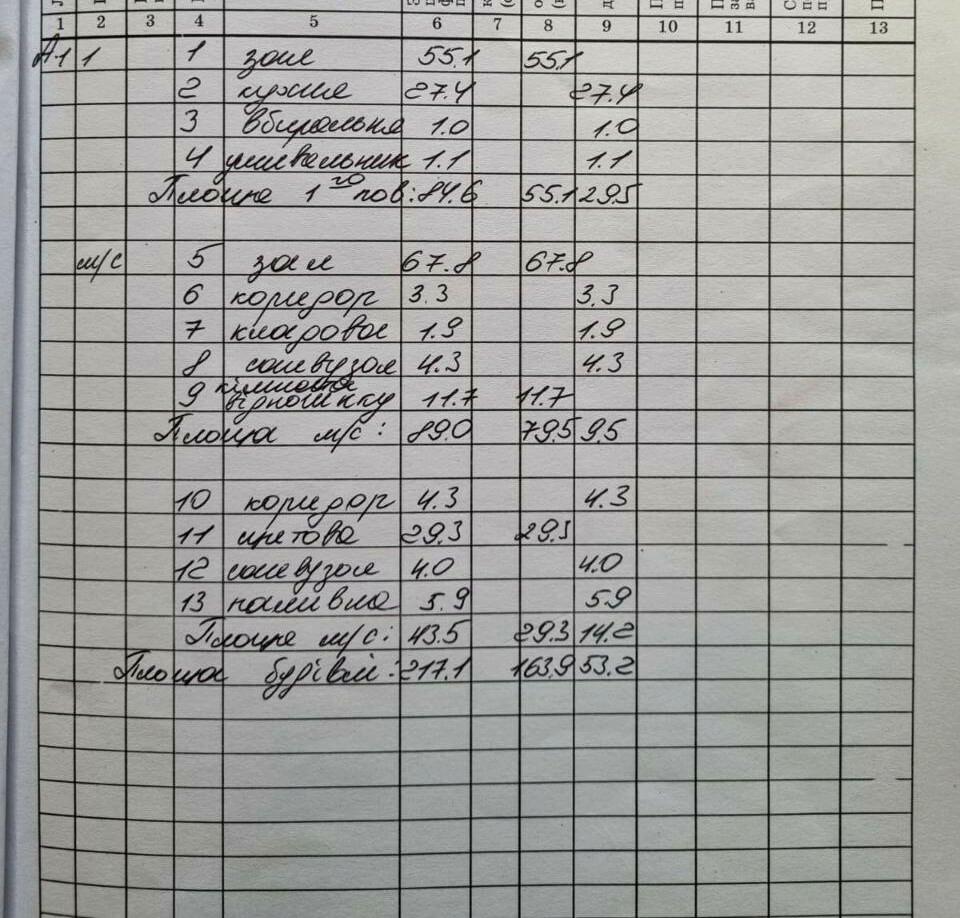 1 2 3 4 5 6 7 8 9 10 11 12 13
А-1 1 1 зал 55.1 55.1
2 кухня 27.4 27.4
3 вбиральня 1.0 1.0
4 умивальник 1.1 1.1
Площа 1го пов: 84.6 55.1 29.5
м/с 5 зал 67.8 67.8
6 коридор 3.3 3.3
7 кладова 1.9 1.9
8 санвузол 4.3 4.3
9 кімната
відпочинку 11.7 11.7
Площа м/с: 89.0 79.5 9.5
10 коридор 4.3 4.3
11 житлова 29.3 29.3
12 санвузол 4.0 4.0
13 паливна 5.9 5.9
Площа м/с: 43.5 29.3 14.2
Площа будівлі: 217.1 163.9 53.2